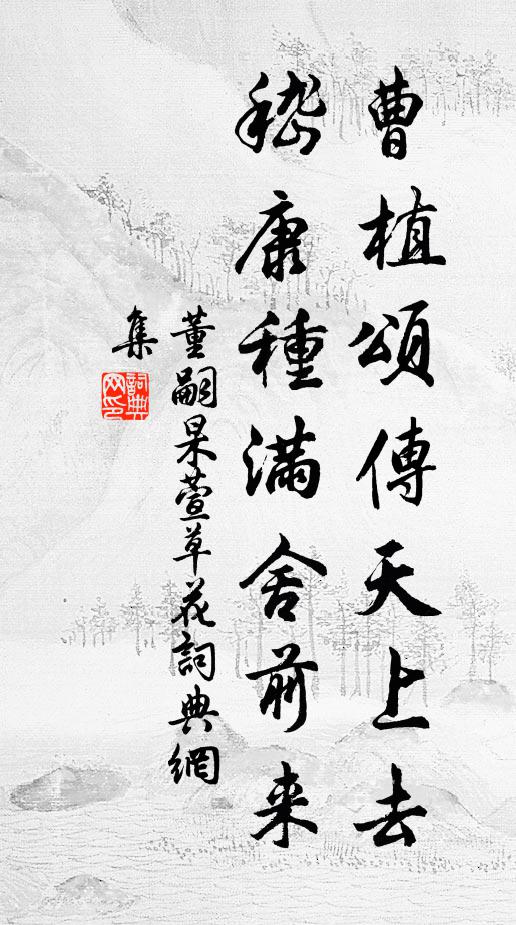 曹植頌傳天上去
嵇康種滿舍前来
董嗣杲萱草花詞典網
集
詞典
网印